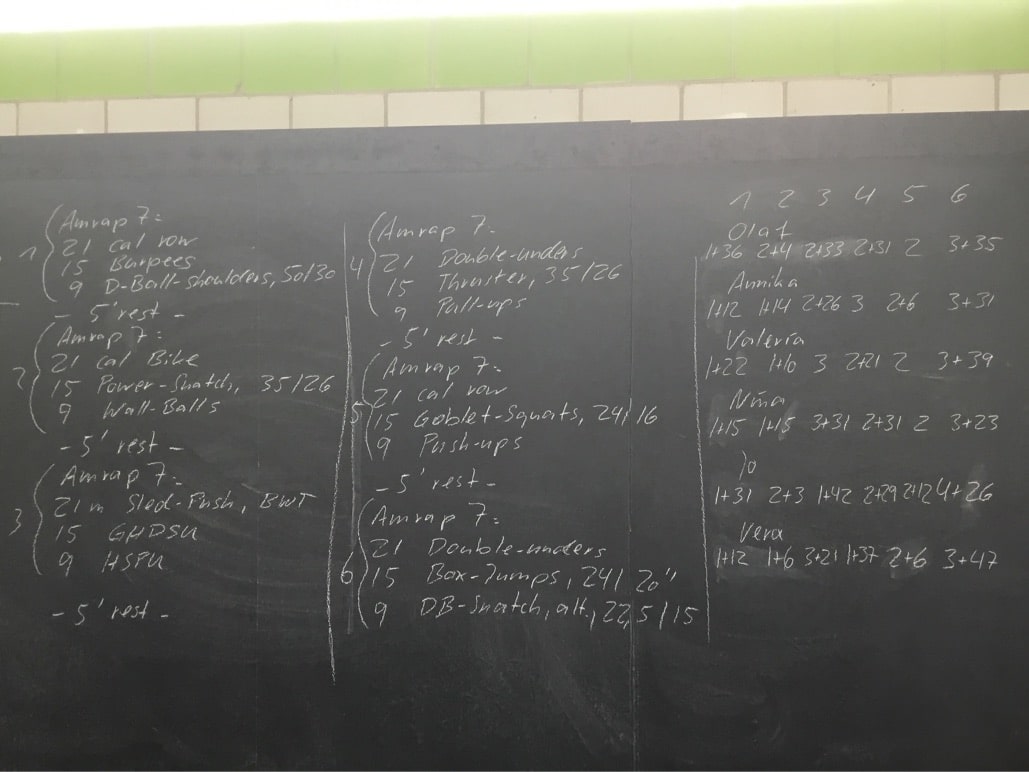 1
Amrap 7:
21 cal row
15 Burpees
9 D-Ball-shoulders, 50/30
- 5' rest -
2
Amrap 7:
21 cal Bike
15 Power-Snatch, 35/26
9 Wall-Balls
- 5' rest -
3
Amrap 7:
21 m Sled-Push, BWT
15 GHDSU
9 HSPU
- 5' rest -
4
Amrap 7:
21 Double-unders
15 Thruster, 35/26
9 Pull-ups
- 5' rest -
5
Amrap 7:
21 cal row
15 Goblet-Squats, 24/16
9 Push-ups
- 5' rest -
6
Amrap 7:
21 Double-unders
15 Box-Jumps, 24/20"
9 DB-Snatch, alt., 22,5/15
1 2 3 4 5 6
Olaf
1+36 2+4 2+33 2+31 2 3+35
Annika
1+12 1+14 2+26 3 2+6 3+31
Valeria
1+22 3 2+21 2 3+39
Niña
1+15 1+15 3+31 2+31 2 3+23
Jo
1+31 2+3 1+42 2+29 2+12 4+26
Vera
1+12 1+6 3+21 1+37 2+6 3+47